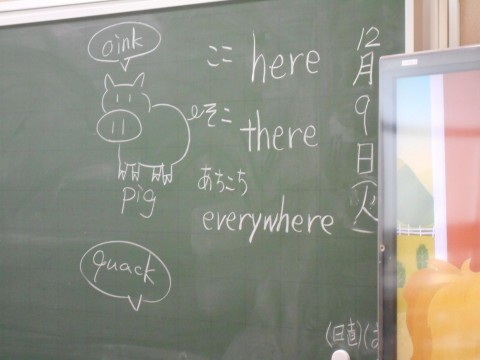 oink
ここ here
そこ there
あちこち
everywhere
pig
quack
12月9日(火)
(日直)